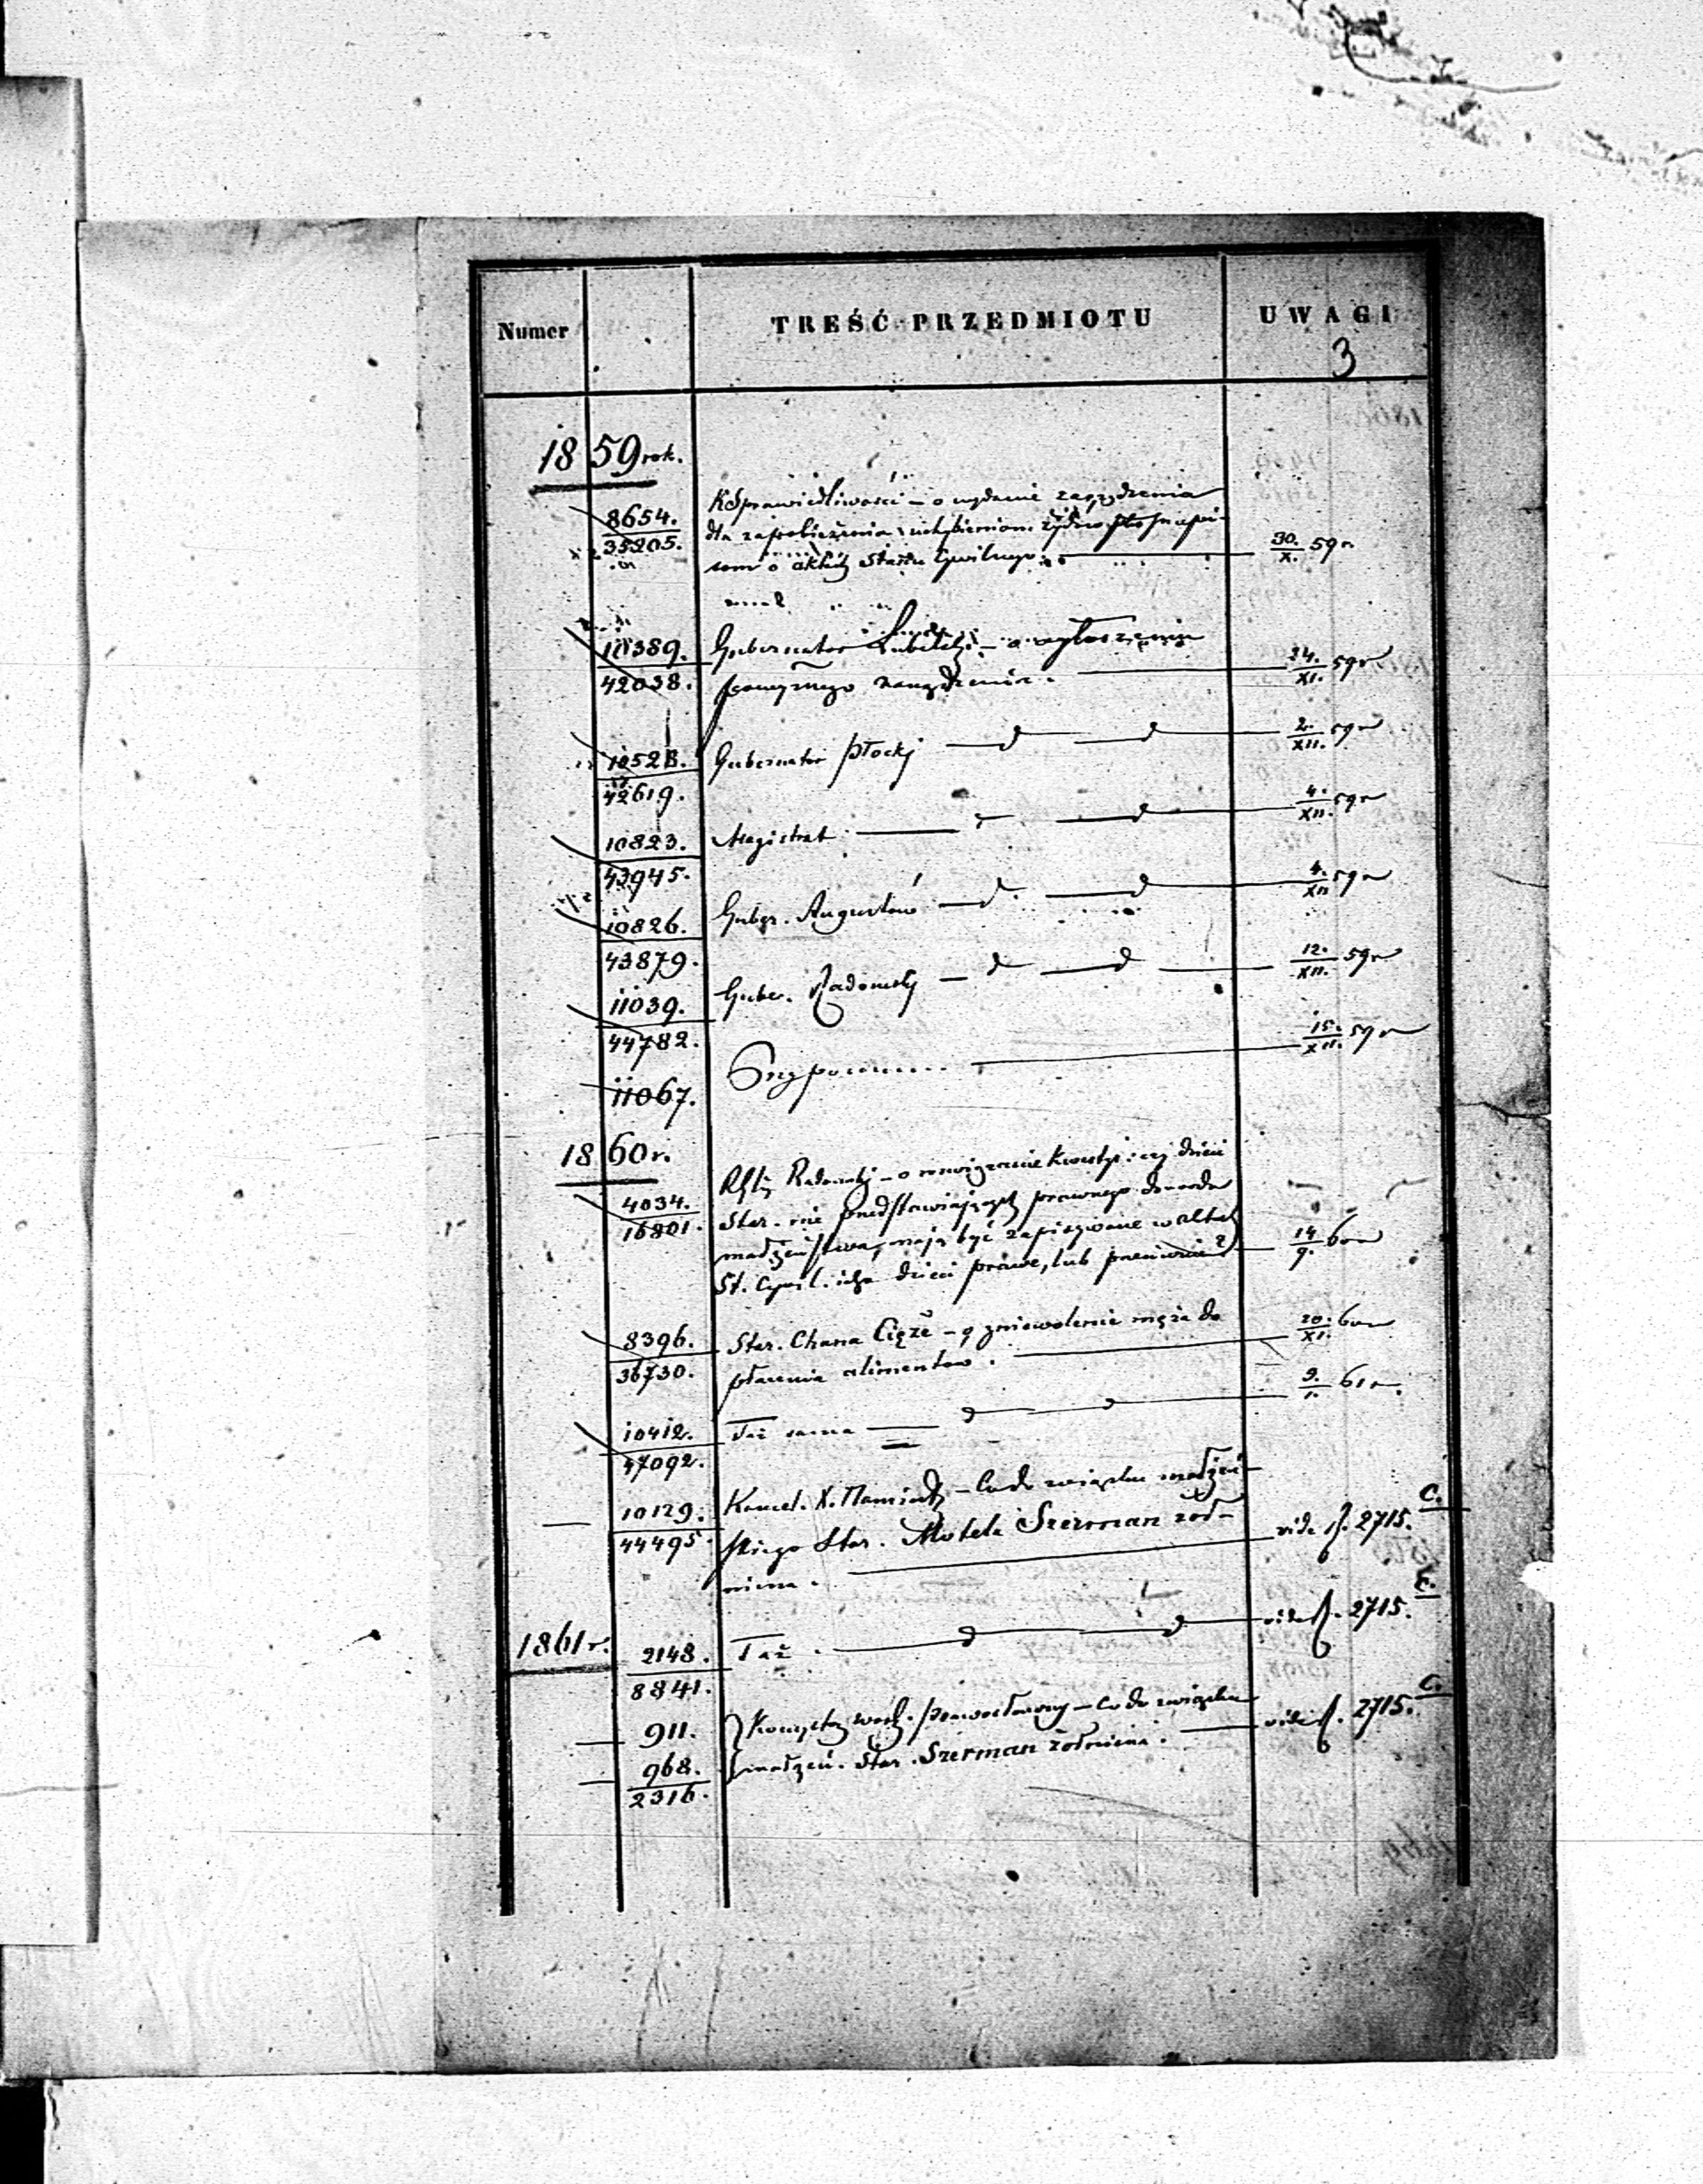 Numer TREŚĆ PRZEDMIOTU UWAGI
3
1859 rok.
8654. KSprawiedliwości – o wydanie zarządzenia
35205. dla zapobieżenia uchybieniom żydów
som o aktach Stanu Cywilnego. 30./X. 59 r.
10389. Gubernator Lubelski – o ogłoszenie
42038. zarządzenia. 24./XI. 59 r
10523. Gubernator Płocki — d — d — 2./XII. 59 r
42619.
10823. Magistrat — d — 4./XII. 59 r
43945.
10826. Guber. Augustow — d — d — 4./XII 59 r
43879.
11039. Guber. Radomski — d — d — 12./XII. 59 r
44782.
11067. 15./XII. 59 r
1860 r.
4034. Radomski – o rozwiązanie kwestyi: czy dzieci
16801. Star. nie przedstawiających prawnego dowodu
małżeństwa, mają być zapisywane w aktach
St. Cywil. dzieci prawe, lub 14/9. 60 r
8396. Star. Chana Ciężé – o zniewolenie męża do
36730. płacenia alimentów. 20./XI. 60 r
10412. Taż sama — d — d — 9./I. 61 r.
47092.
10129. Kancel. X. Namiestn. – Co do związku małżeń-
44495. skiego Star. Moteta Szerman żoł- vide 2715. C.
nierza.
1861 r. 2148. Taż. — d — d — vide 2715. C.
8841.
911. prawosławny – Co do związku vide 2715. C.
968. małżeń. Star. Szerman żołnierza.
2316.